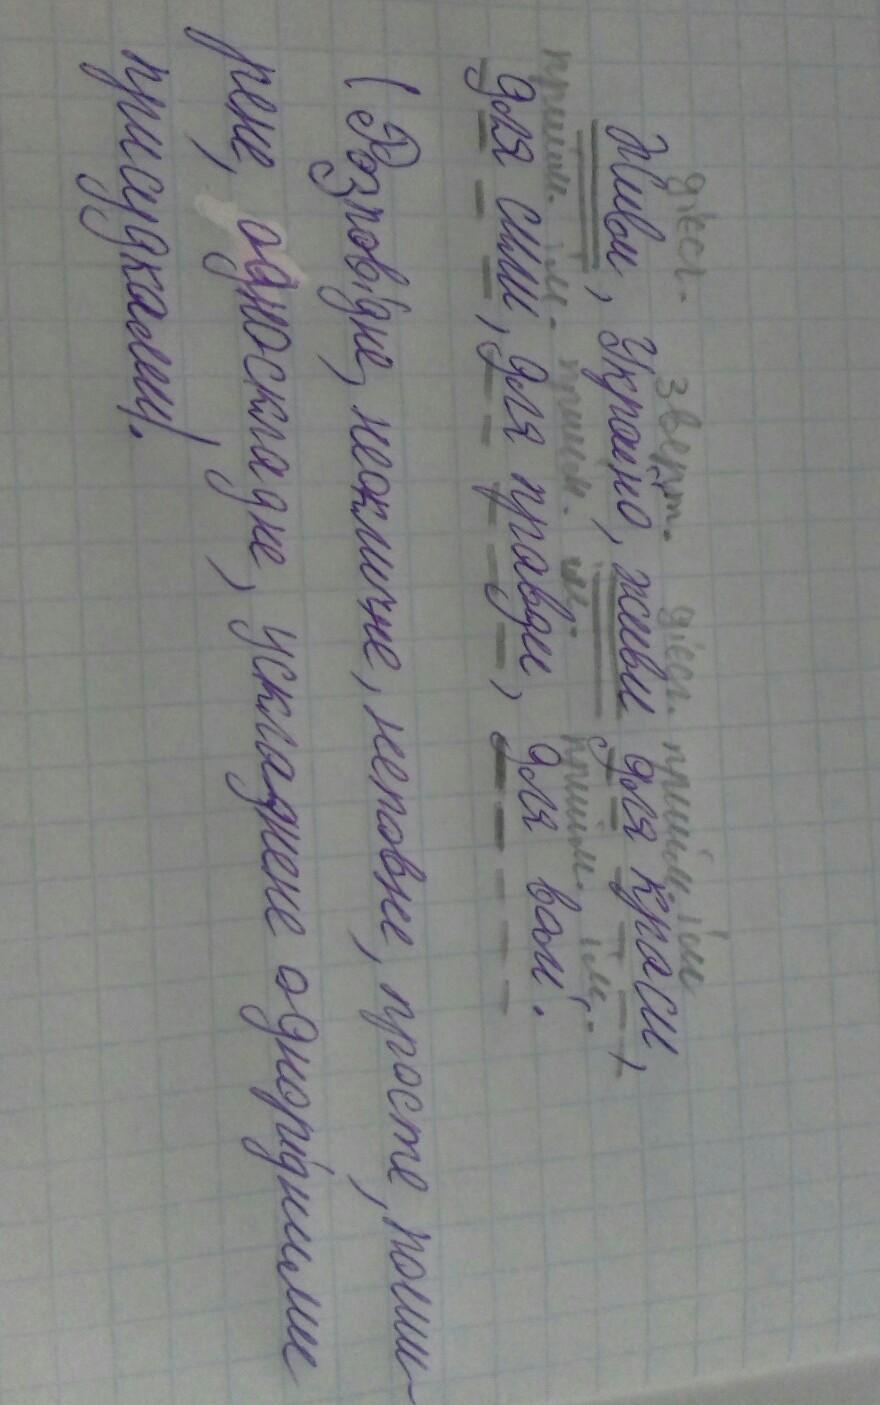 дієсл. зверт. дієсл. прийм. ім
Живи, Україно, живи для краси,
прийм. ім. прийм. ім. прийм. ім.
для сили, для правди, для волі.
(Розповідне, неокличне, неповне, просте, поши-
рене, односкладне, ускладнене однорідними
присудками).